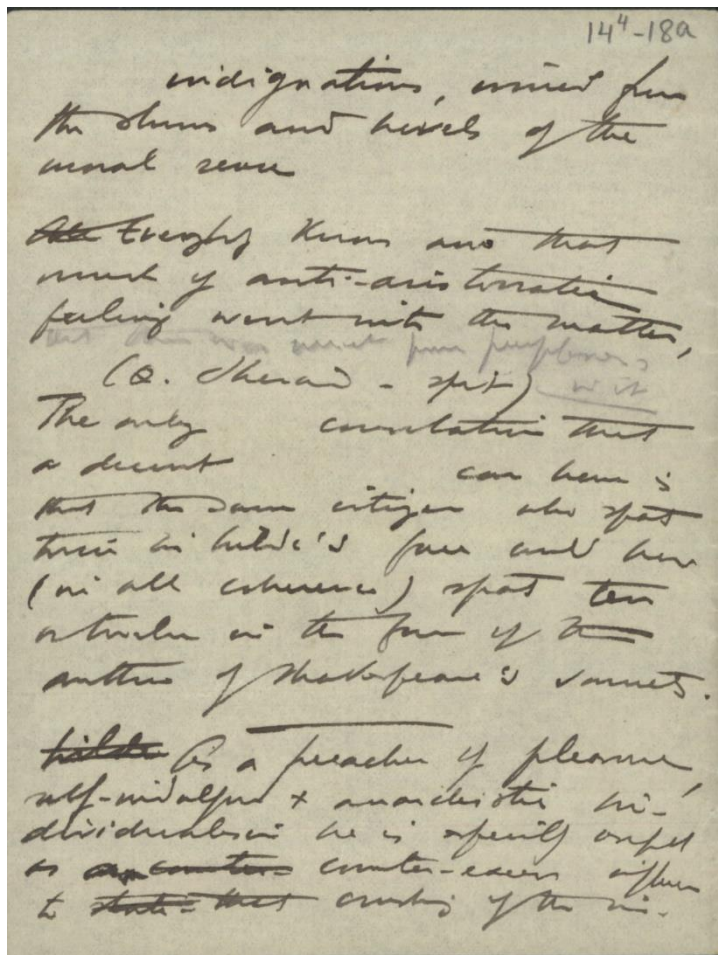 14⁴-18a
indignations, from
the slums and hovels of the
moral sense
Everybody knows that
much of anti-aristocratic
feeling went with the matter,
that there was
(Q. Sherard - spit) wit
The only consolation that
a decent can have is
that the same citizen who spat
twice in Wilde's face could have
(in all coherence) spat ten
in the face of the
author of Shakespeare's sonnets.
Wilde As a preacher of pleasure,
self-indulgence + anarchistic in-
dividualism he is
as counter- counter-excess
to state- that crushing of the in-